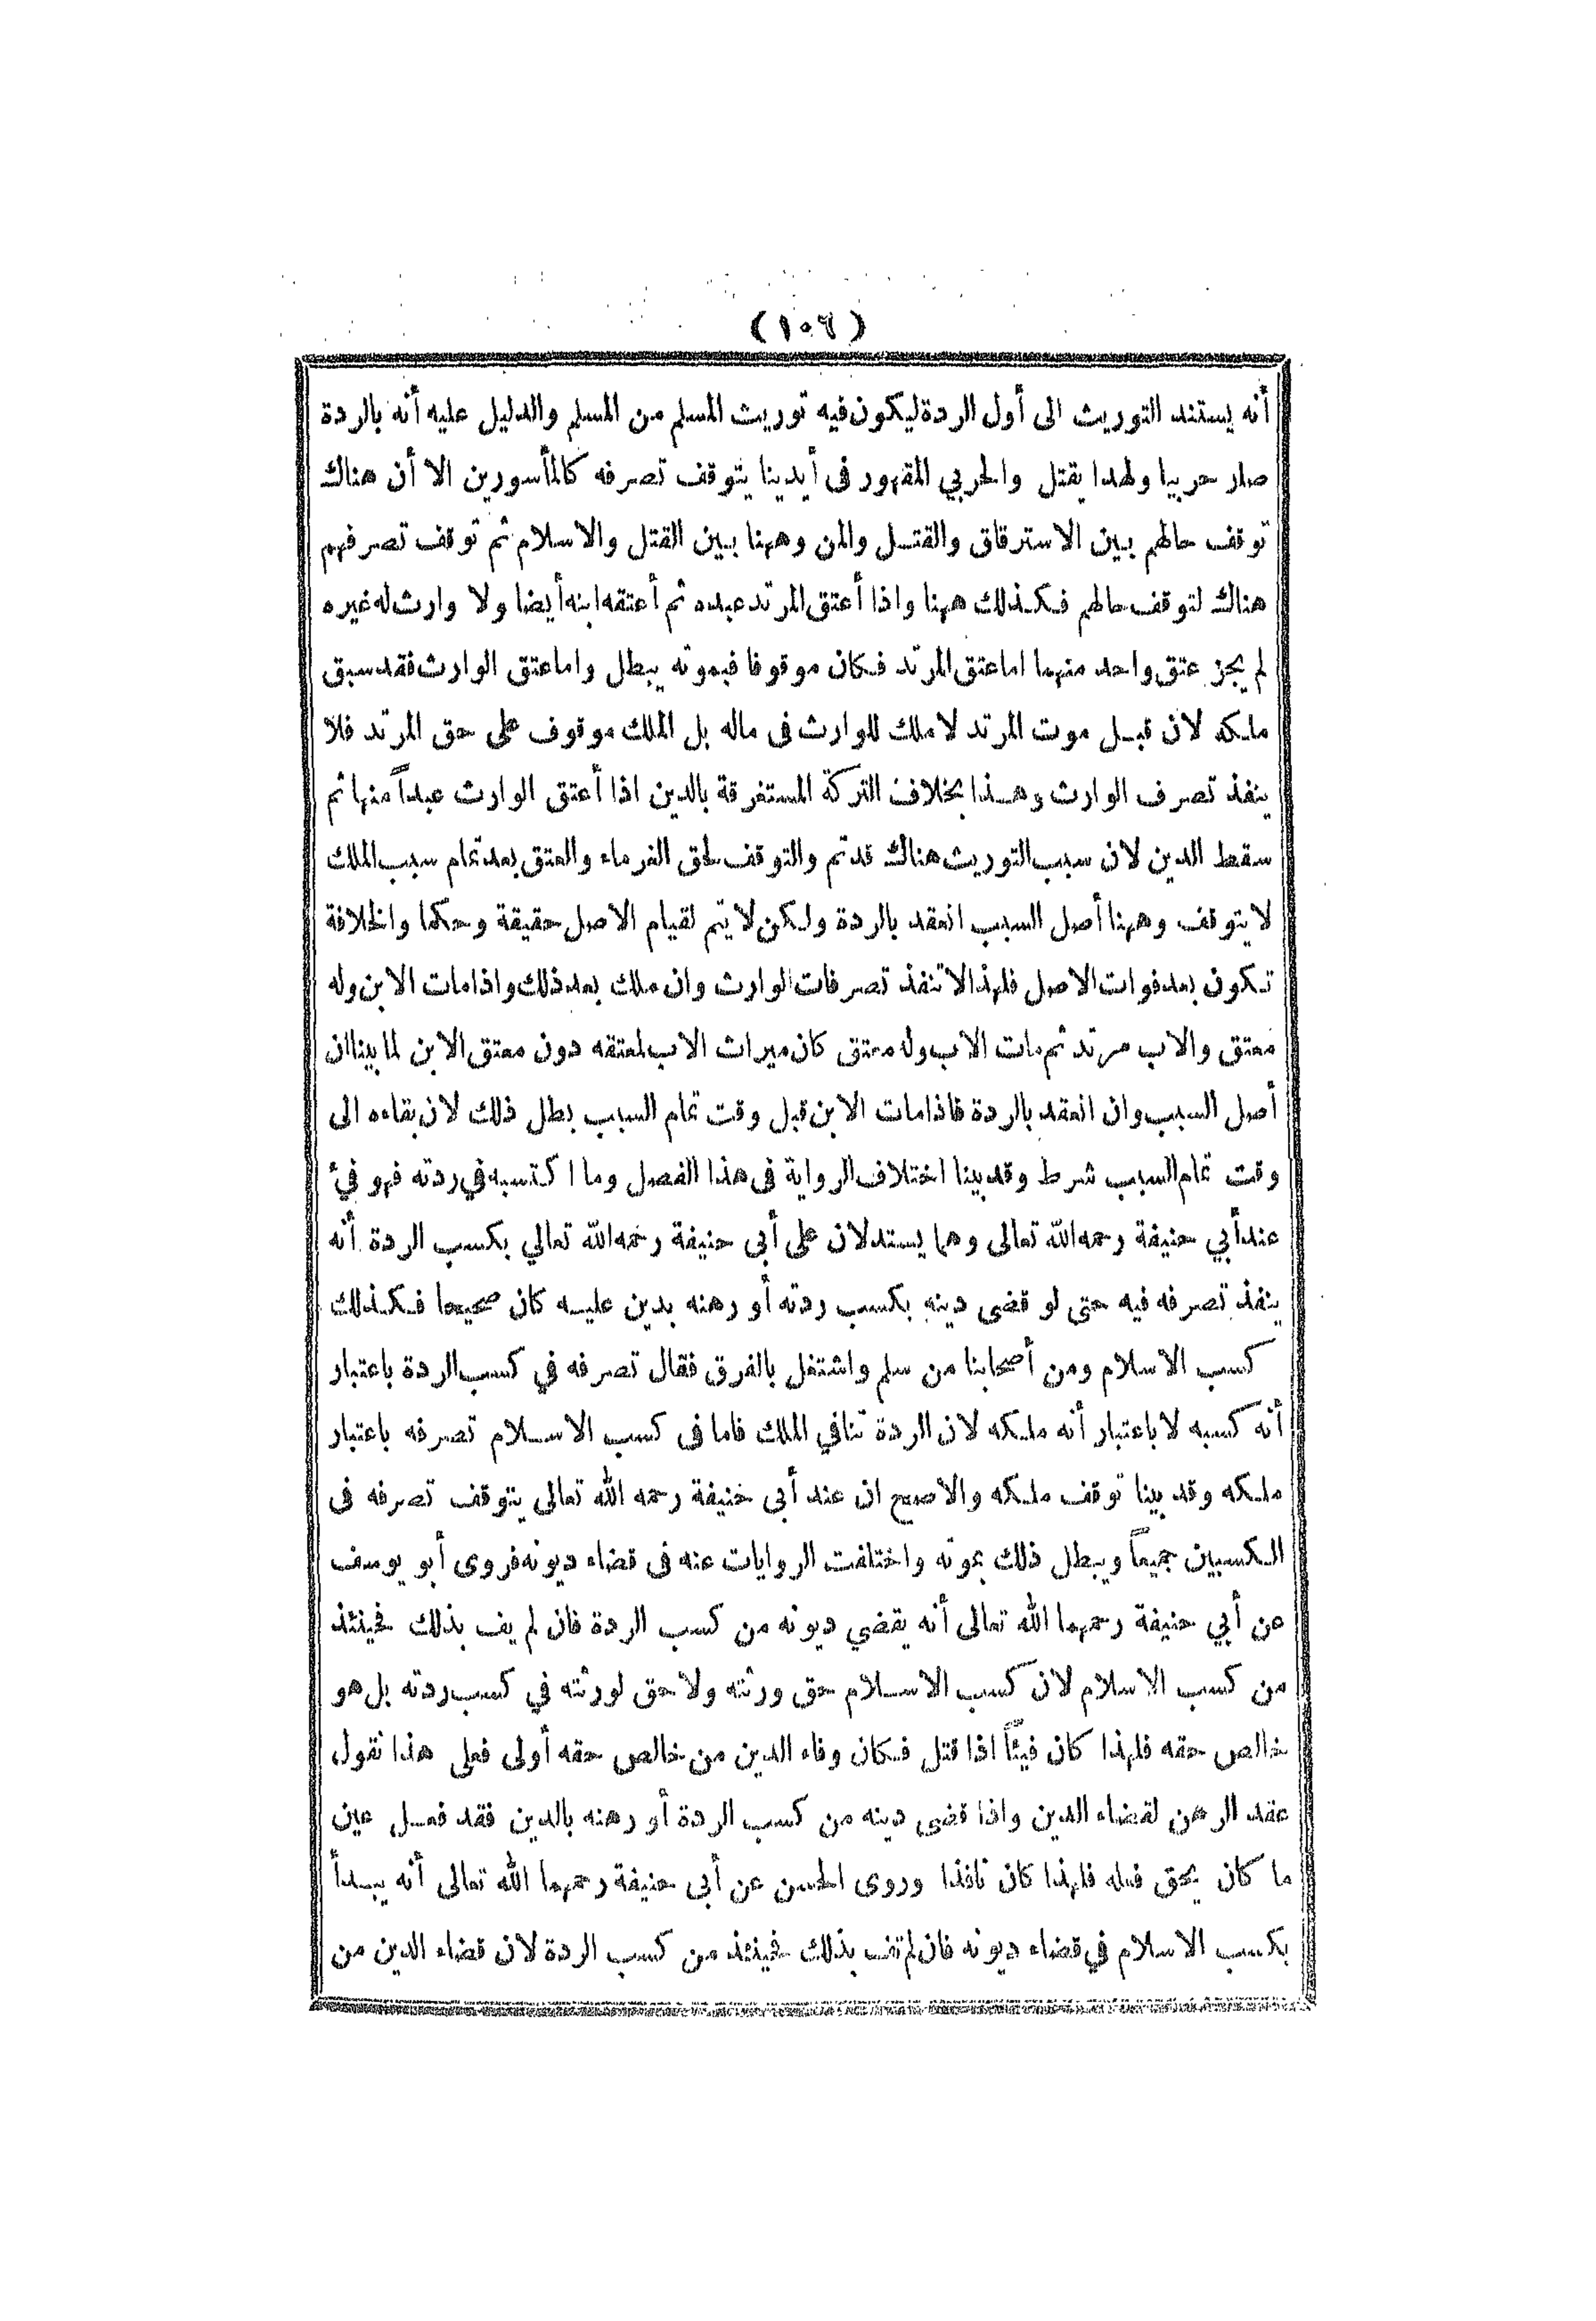 (١٠٦)
أنه يستند التوريث الى أول الردة ليكون فيه توريث المسلم من المسلم والدليل عليه أنه بالردة
صار حربيا ولهذا يقتل والحربي المقهور فى أيدينا يتوقف تصرفه كالمأسورين الا أن هناك
توقف حالهم بين الاسترقاق والقتل والمن وههنا بين القتل والاسلام ثم توقف تصرفهم
هناك لتوقف حالهم فكذلك ههنا واذا أعتق المرتد عبده ثم أعتقه ابنه أيضا ولا وارث له غيره
لم يجز عتق واحد منهما اما عتق المرتد فكان موقوفا فبموته يبطل واما عتق الوارث فقد سبق
ملكه لان قبل موت المرتد لا ملك للوارث فى ماله بل الملك موقوف على حق المرتد فلا
ينفذ تصرف الوارث وهذا بخلاف التركة المستغرقة بالدين اذا أعتق الوارث عبداً منها ثم
سقط الدين لان سبب التوريث هناك قد تم والتوقف لحق الغرماء والعتق بعد تمام سبب الملك
لا يتوقف وههنا أصل السبب انعقد بالردة ولكن لا يتم لقيام الاصل حقيقة وحكما والخلافة
تكون بعد فوات الاصل فلهذا لا تنفذ تصرفات الوارث وان ملك بعد ذلك واذا مات الابن وله
معتق والاب مرتد ثم مات الاب وله معتق كان ميراث الاب لمعتقه دون معتق الابن لما بينا ان
أصل السبب وان انعقد بالردة فاذا مات الابن قبل وقت تمام السبب بطل ذلك لان بقاءه الى
وقت تمام السبب شرط وقد بينا اختلاف الرواية فى هذا الفصل وما اكتسبه في ردته فهو فيء
عند أبي حنيفة رحمه الله تعالى وهما يستدلان على أبى حنيفة رحمه الله تعالي بكسب الردة أنه
ينفذ تصرفه فيه حتى لو قضى دينه بكسب ردته أو رهنه بدين عليه كان صحيحا فكذلك
كسب الاسلام ومن أصحابنا من سلم واشتغل بالفرق فقال تصرفه في كسب الردة باعتبار
أنه كسبه لا باعتبار أنه ملكه لان الردة تنافي الملك فاما فى كسب الاسلام تصرفه باعتبار
ملكه وقد بينا توقف ملكه والاصح ان عند أبى حنيفة رحمه الله تعالى يتوقف تصرفه فى
الكسبين جميعاً ويبطل ذلك بموته واختلفت الروايات عنه فى قضاء ديونه فروى أبو يوسف
عن أبي حنيفة رحمهما الله تعالى أنه يقضي ديونه من كسب الردة فان لم يف بذلك فحينئذ
من كسب الاسلام لان كسب الاسلام حق ورثته ولا حق لورثته في كسب ردته بل هو
خالص حقه فلهذا كان فيئاً اذا قتل فكان وفاء الدين من خالص حقه أولى فعلى هذا نقول
عقد الرهن لقضاء الدين واذا قضى دينه من كسب الردة أو رهنه بالدين فقد فعل عين
ما كان يحق فعله فلهذا كان نافذا وروى الحسن عن أبى حنيفة رحمهما الله تعالى أنه يبدأ
بكسب الاسلام في قضاء ديونه فان لم تف بذلك فحينئذ من كسب الردة لان قضاء الدين من